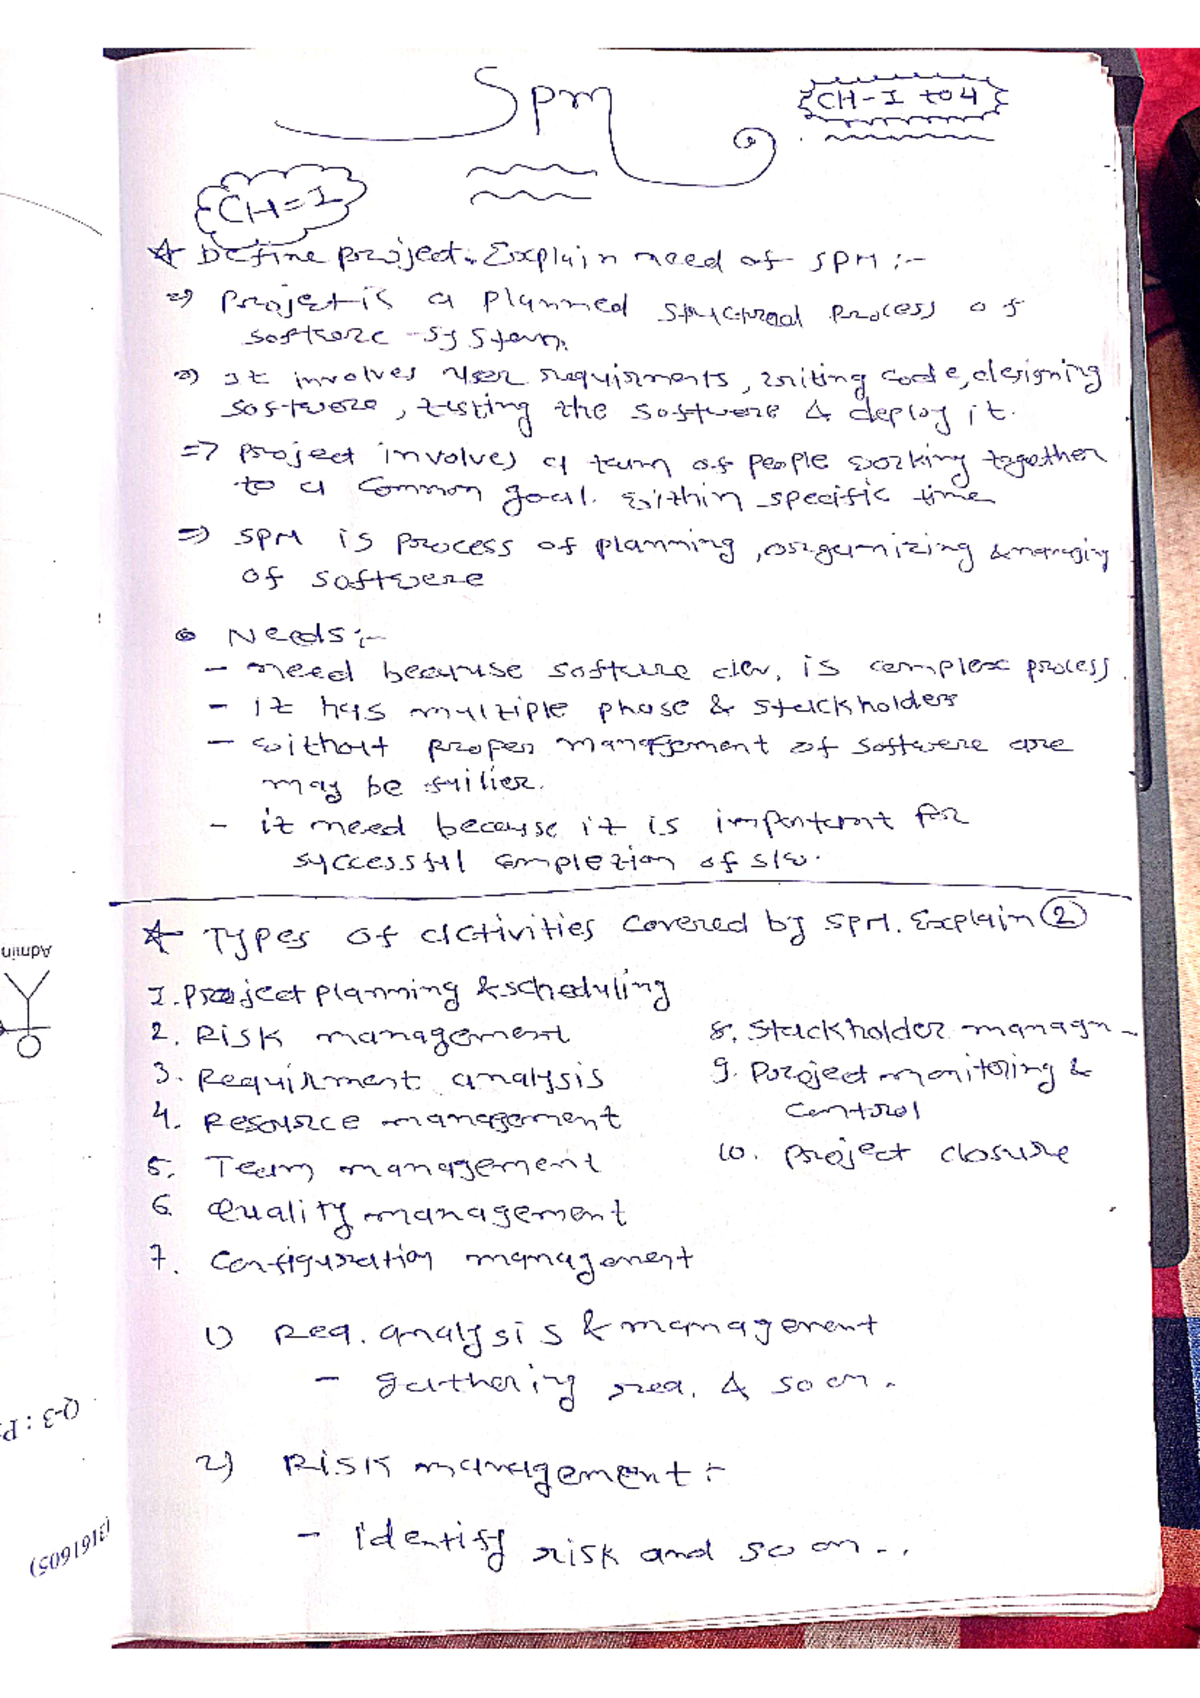 Spm
CH-I to 4
CH=I
Define project. Explain need of SPM :-
=> Projet is a planned structreal process of
softwere -system.
=> It involves user requirments, writing code, designing
softwere, testing the softwere & deploy it.
=> project involves a team of people working together
to a common goal. within specific time
=> SPM is process of planning, organizing & managing
of softwere
Needs :-
- need because softwere dev. is complex process.
- it has multiple phase & stackholders
- without proper management of softwere are
may be failier.
- it need because it is important for
successful completion of s/w.
Types of activities covered by SPM. Explain 2
I. Project planning & scheduling
2. Risk management
3. Requirment analysis
4. Resource management
5. Team management
6. Quality management
7. Configuration management
8. Stackholder managn -
9. Project monitoring &
control
10. project closure
1) Req. analysis & management
- gathering req. & so on.
2) Risk management :-
- identify risk and so on..
Admin
Q-3 : P
(3161605)